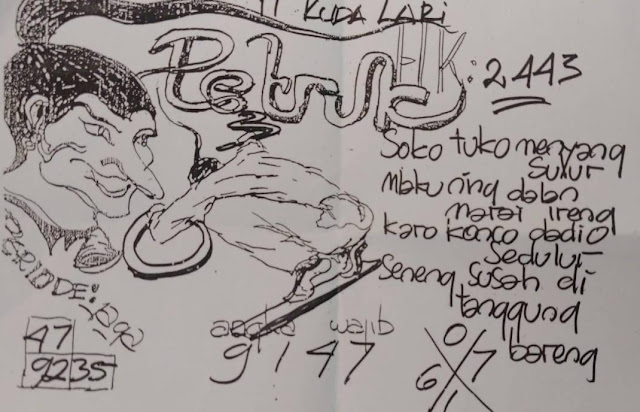 KUDA LARI
Petruk
HK: 2443
Soko tuko menyang
sulur
dalan
marai ireng
karo konco dadio
sedulur
seneng susah di
tanggung
bareng
PERIODE:
47
9235
angka wajib
9147
0
6 7
1